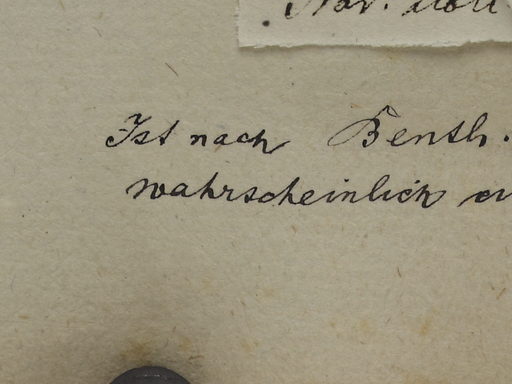 Nov.
Ist nach Benth.
wahrscheinlich